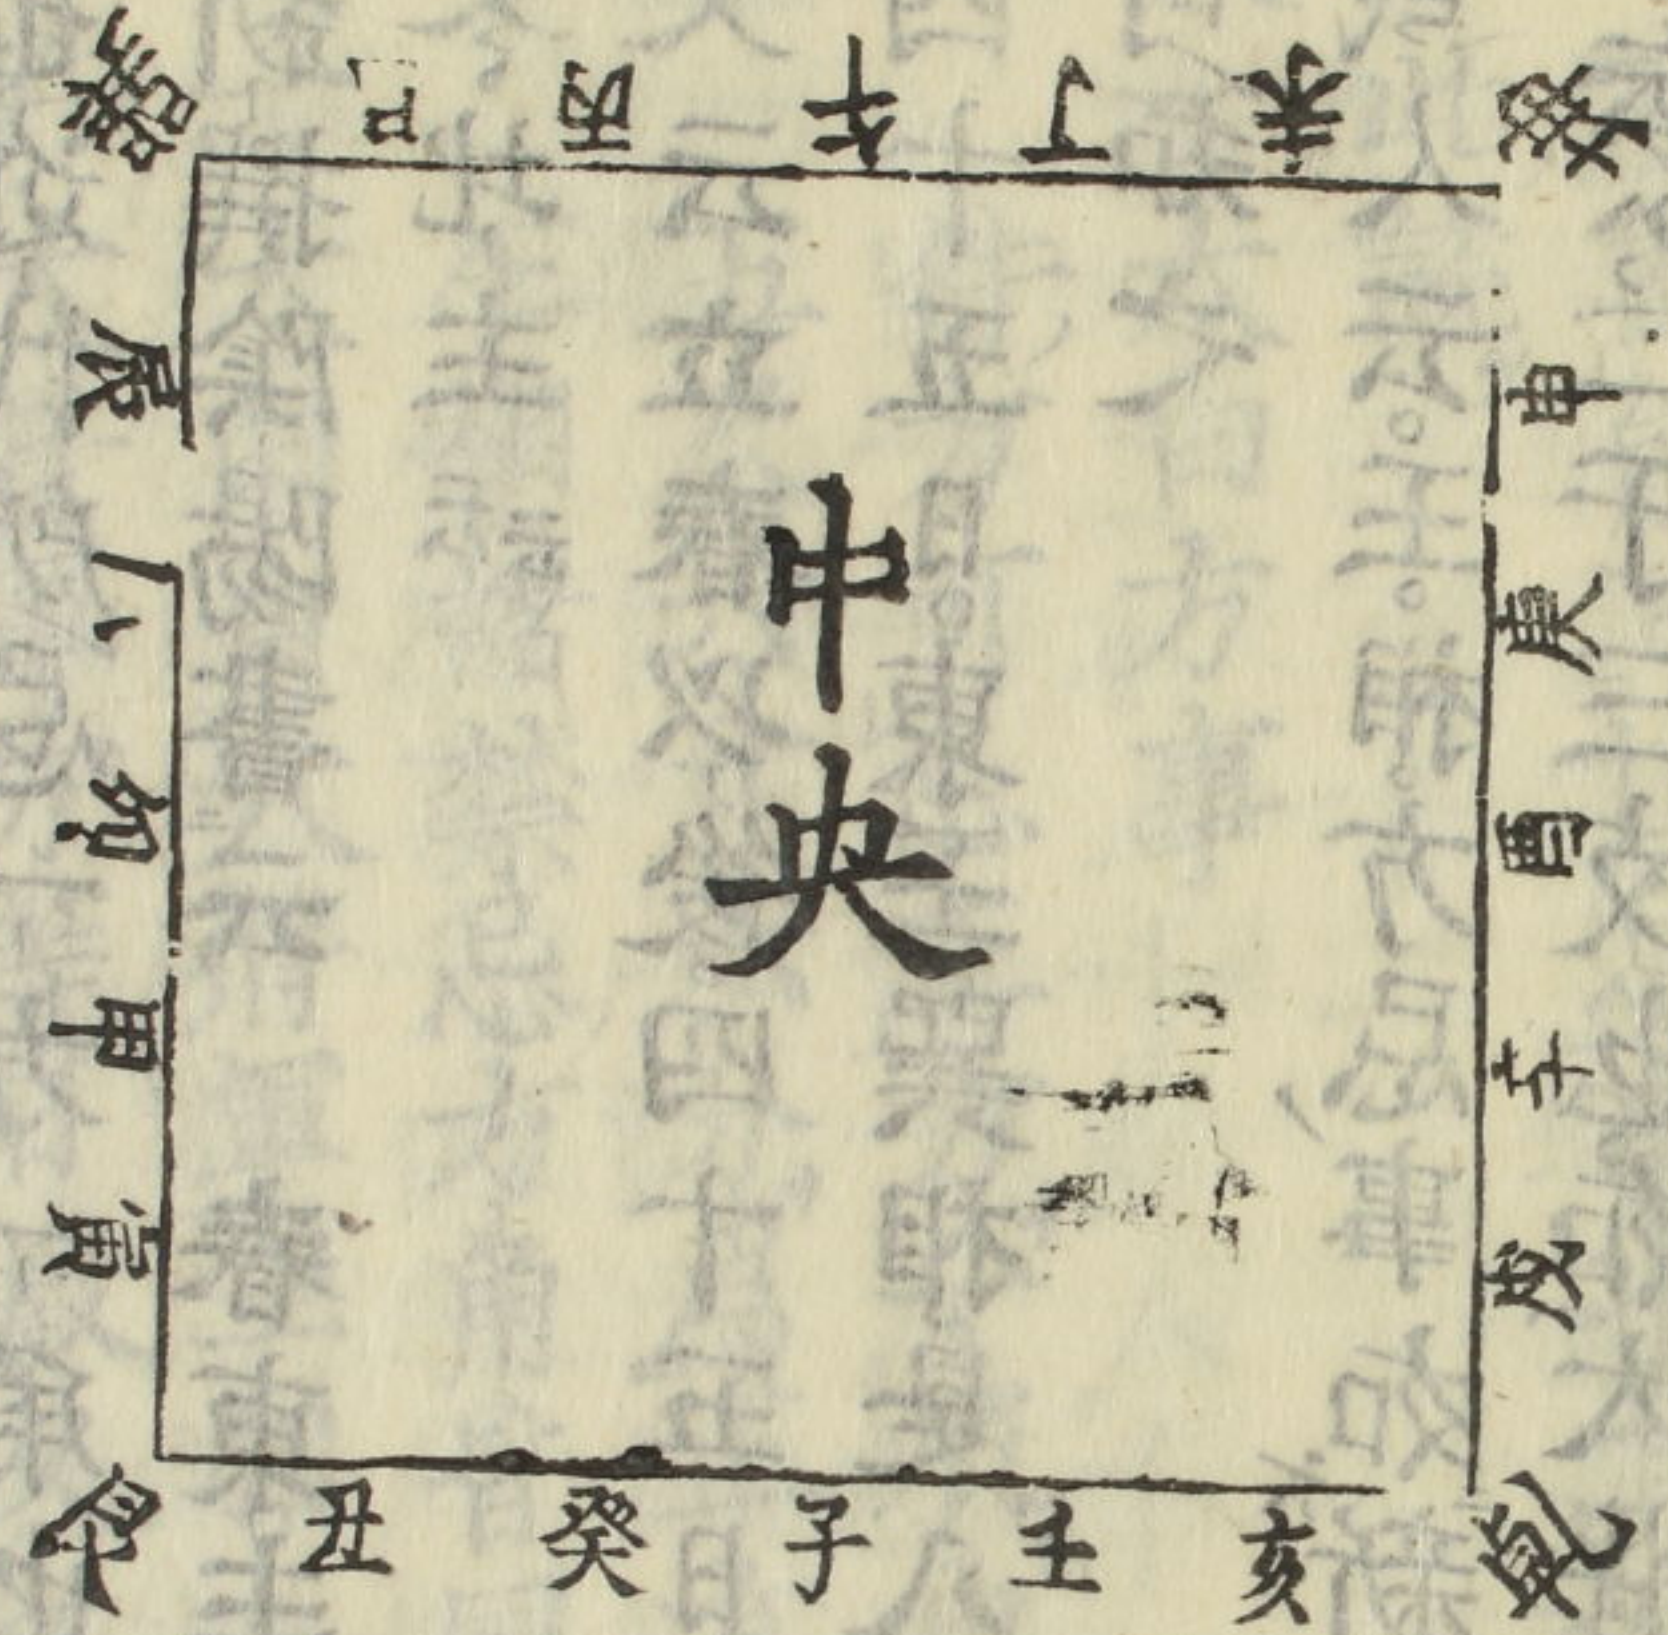 巽 巳 丙 午 丁 未 坤
申 庚 酉 辛 戌
中央
辰 卯 甲 寅
艮 丑 癸 子 壬 亥 乾